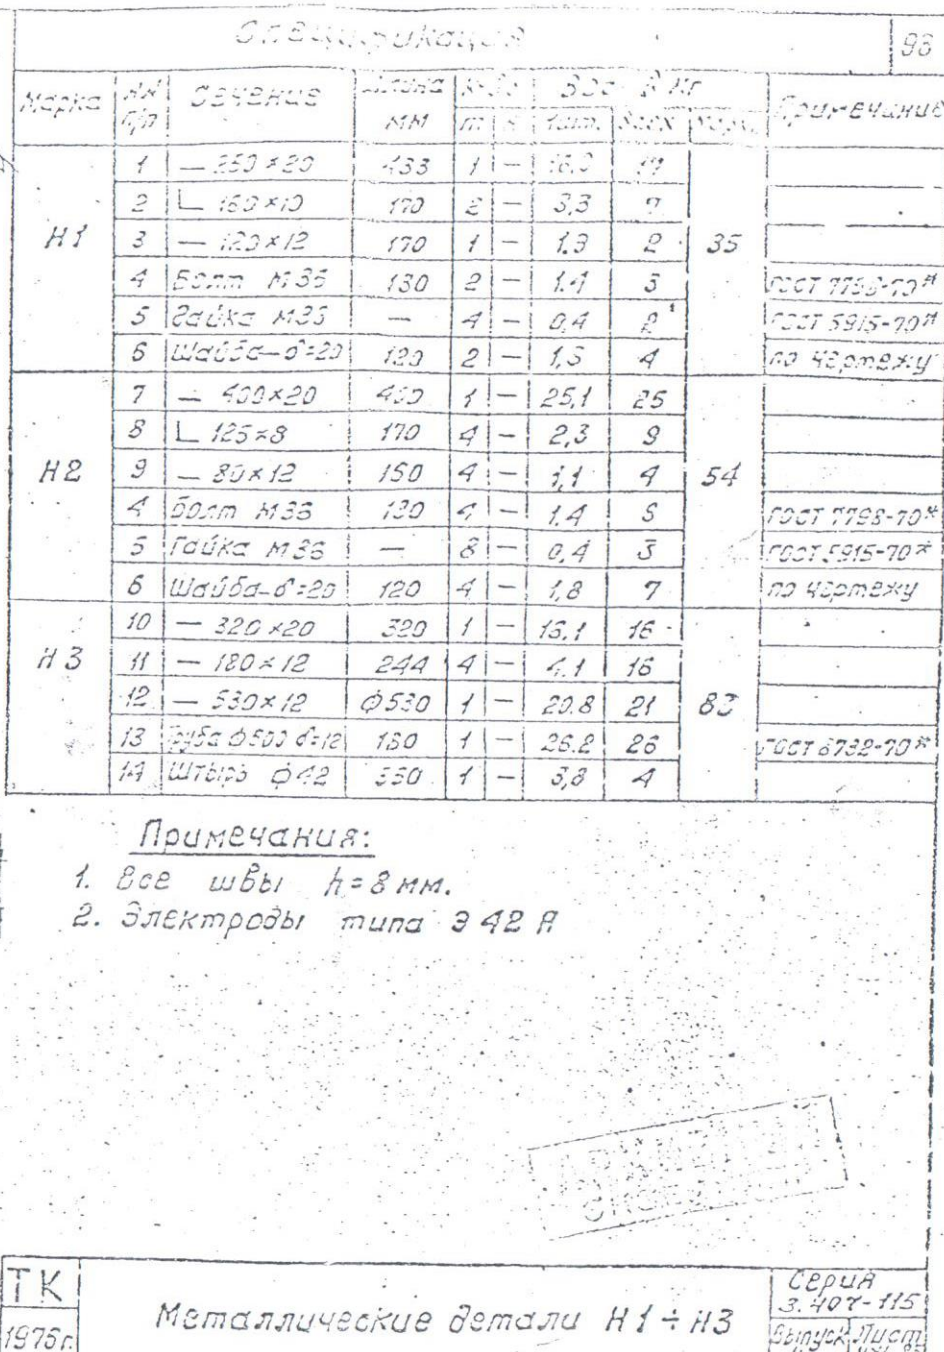 Спецификация 93
Марка №№ п/п Сечение Длина мм К-во т н Вес в кг 1шт. Всех Марки Примечание
Н1
1 — 250×20 433 1 — 17
2 ∟ 160×10 170 2 — 3,3 7
3 — 120×12 170 1 — 1,9 2 35
4 Болт М36 130 2 — 1.4 3 ГОСТ 7798-70*
5 Гайка М36 — 4 — 0,4 2 ГОСТ 5915-70*
6 Шайба-δ=20 120 2 — 4 по чертежу
Н2
7 — 400×20 400 1 — 25,1 25
8 ∟ 125×8 170 4 — 2,3 9
9 — 80×12 150 4 — 1,1 4 54
4 Болт М36 130 4 — 1.4 ГОСТ 7798-70*
5 Гайка М36 — 8 — 0,4 3 ГОСТ 5915-70*
6 Шайба-δ=20 120 4 — 1,8 7 по чертежу
Н3
10 — 320×20 320 1 — 16,1 16
11 — 180×12 244 4 — 4.1 16
12 — 530×12 Ф530 1 — 20.8 21 83
13 Труба Ф500 δ=12 180 1 — 26.2 26 ГОСТ 8732-70*
14 Штырь Ф42 350 1 — 3,8 4
Примечания:
1. Все швы h=8 мм.
2. Электроды типа Э42А
ТК
1975г.
Металлические детали Н1÷Н3
Серия
3.407-115
Выпуск Лист